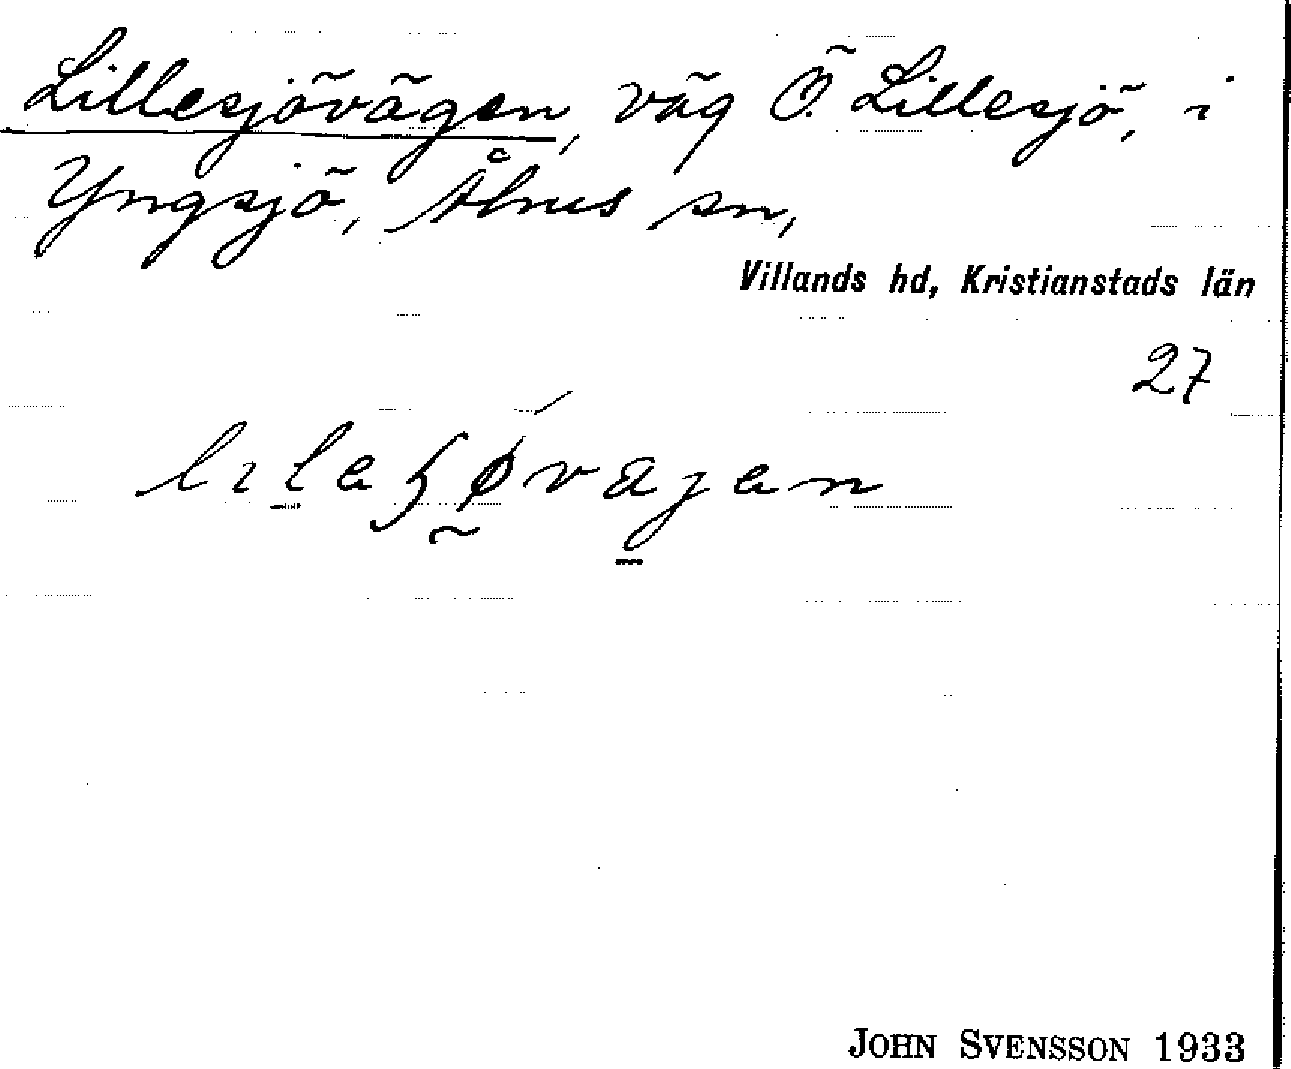 Lillesjövägen, väg Ö. Lillesjö, i
Yngsjö, Åhus sn,
Villands hd, Kristianstads län
27
JOHN SVENSSON 1933